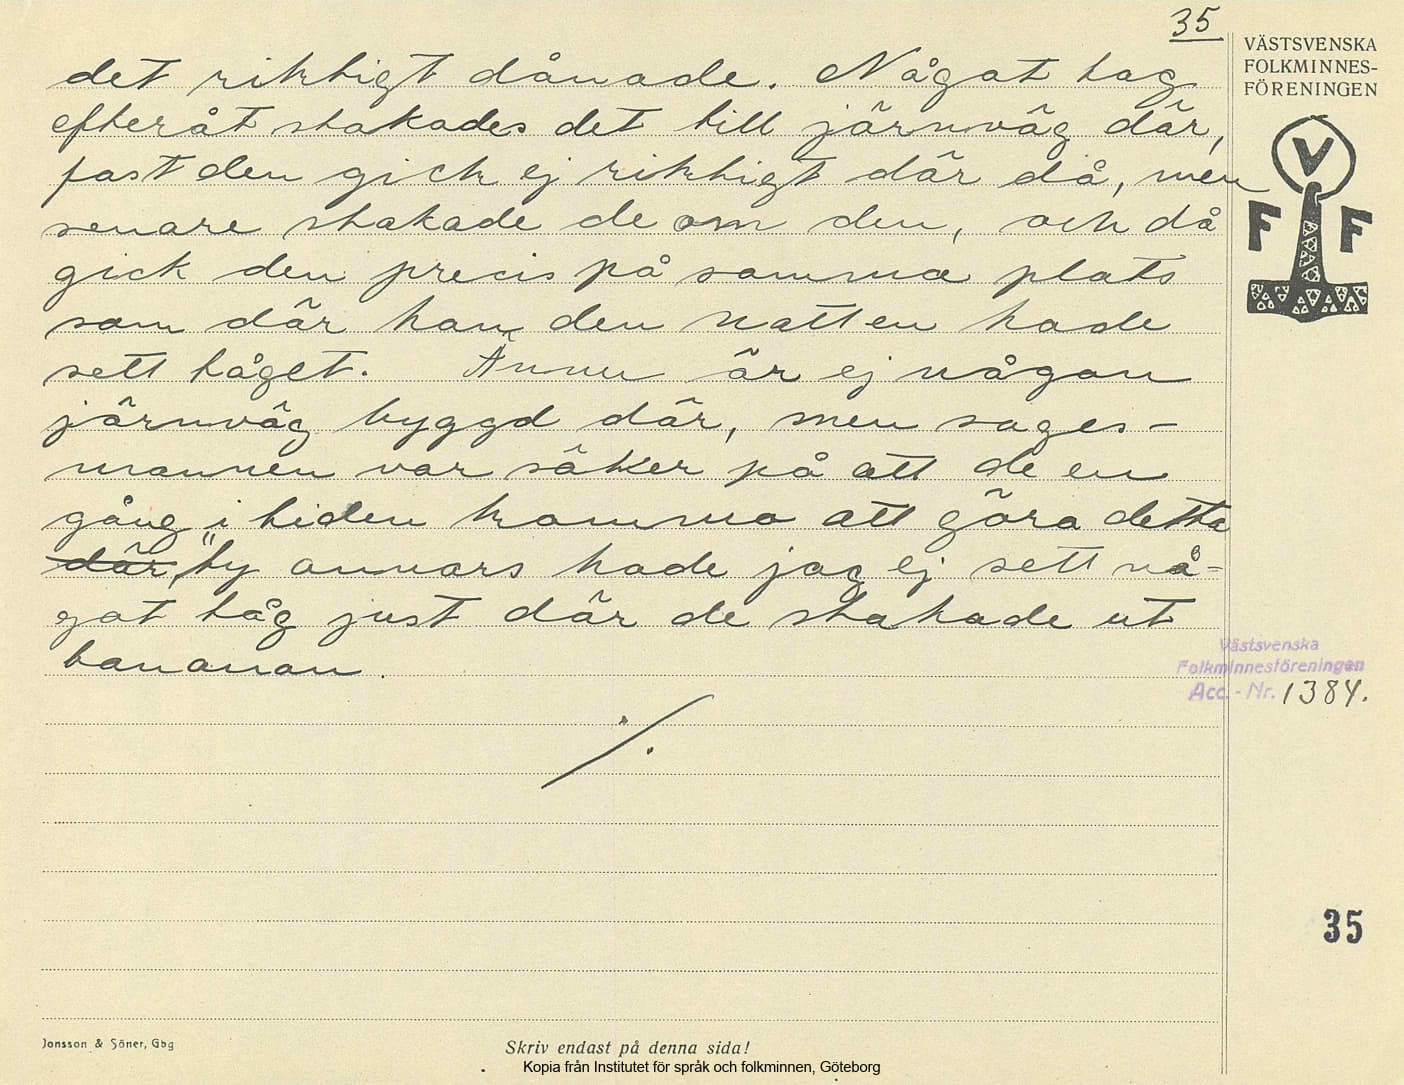 35
VÄSTSVENSKA
FOLKMINNES-
FÖRENINGEN
V
F F
det riktigt dånade. Något tag
efteråt stakades det till järnväg där,
fast den gick ej riktigt där då, men
senare stakade de om den, och då
gick den precis på samma plats
som där han den natten hade
sett tåget. Ännu är ej någon
järnväg byggd där, men sages-
mannen var säker på att de en
gång i tiden komma att göra detta
där, "ty annars hade jag ej sett nå-
got tåg just där de stakade ut
bananan.
Västsvenska
Folkminnesföreningen
Acc. - Nr. 1384.
35
Jonsson & Söner, Gbg
Skriv endast på denna sida!
Kopia från Institutet för språk och folkminnen, Göteborg